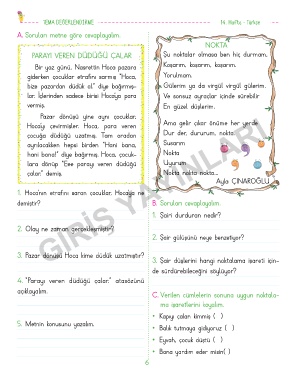 TEMA DEĞERLENDİRME
14. Hafta - Türkçe
A. Soruları metne göre cevaplayalım.
PARAYI VEREN DÜDÜĞÜ ÇALAR
Bir yaz günü, Nasrettin Hoca pazara
giderken çocuklar etrafını sarmış "Hoca,
bize pazardan düdük al." diye bağrışmış-
lar. İçlerinden sadece birisi Hoca'ya para
vermiş.
Pazar dönüşü yine aynı çocuklar,
Hoca'yı çevirmişler. Hoca, para veren
çocuğa düdüğü uzatmış. Tam oradan
ayrılacakken hepsi birden "Hani bana,
hani bana!" diye bağırmış. Hoca, çocuk-
lara dönüp "Eee parayı veren düdüğü
çalar." demiş.
1. Hoca'nın etrafını saran çocuklar, Hoca'ya ne
demiştir?
2. Olay ne zaman gerçekleşmiştir?
3. Pazar dönüşü Hoca kime düdük uzatmıştır?
4. "Parayı veren düdüğü çalar." atasözünü
açıklayalım.
5. Metnin konusunu yazalım.
NOKTA
Şu noktalar olmasa ben hiç durmam,
Koşarım, koşarım, koşarım.
Yorulmam.
Gülerim ya da virgül virgül gülerim.
Ve sonsuz ayraçlar içinde sürebilir
En güzel düşlerim.
Ama gelir çıkar önüme her yerde
Dur der, dururum, nokta.
Susarım
Nokta
Uyurum
Nokta nokta nokta...
Ayla ÇINAROĞLU
B. Soruları cevaplayalım.
1. Şairi durduran nedir?
2. Şair gülüşünü neye benzetiyor?
3. Şair düşlerini hangi noktalama işareti için-
de sürdürebileceğini söylüyor?
C. Verilen cümlelerin sonuna uygun noktala-
ma işaretlerini koyalım.
• Kapıyı çalan kimmiş ( )
• Balık tutmaya gidiyoruz ( )
• Eyvah, çocuk düştü ( )
• Bana yardım eder misin( )
6
GİRİŞ YAYINLARI